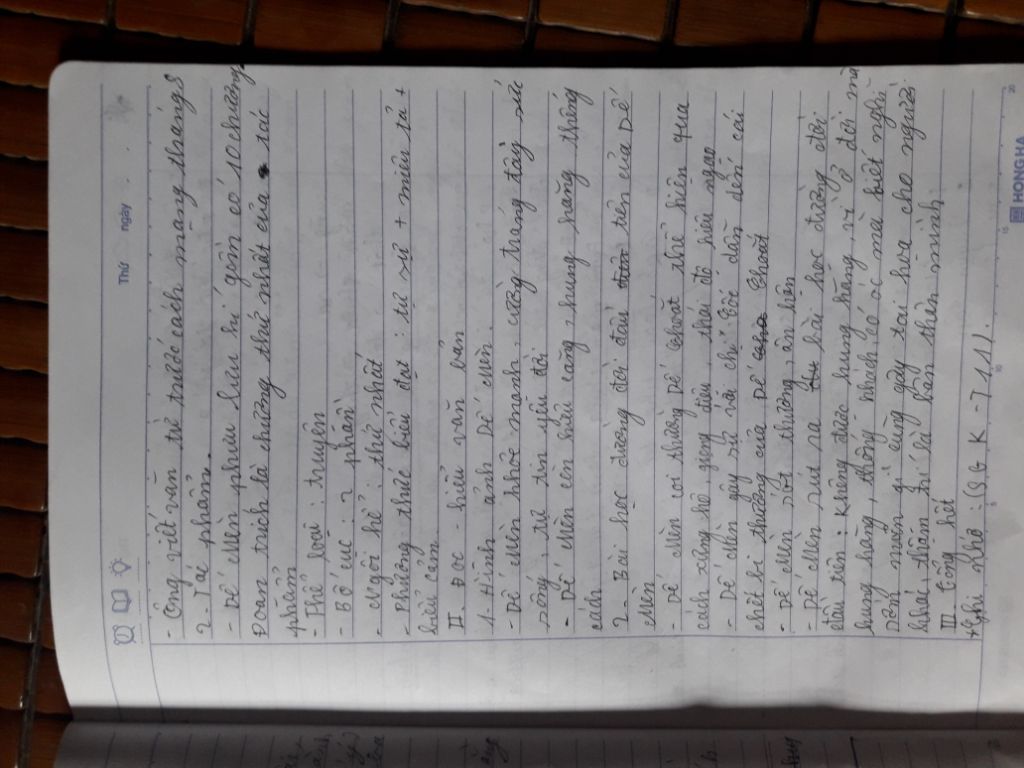 Thứ ngày
- Ông viết văn từ trước cách mạng tháng 8
2- Tác phẩm.
- Dế Mèn phưu lưu kí gồm có 10 chương
Đoạn trích là chương thứ nhất của tác
phẩm
- Thể loại: truyện
- Bố cục: 2 phần
- Ngôi kể: thứ nhất
- Phương thức biểu đạt: tự sự + miêu tả +
biểu cảm
II. Đọc - hiểu văn bản
1- Hình ảnh Dế Mèn.
- Dế Mèn khỏe mạnh, cường tráng đầy sức
sống, tự tin yêu đời
- Dế Mèn còn kiêu căng, hung hăng thống
cách
2- Bài học đường đời đầu tiên của Dế
Mèn
- Dế Mèn coi thường Dế Choắt thể hiện qua
cách xưng hô, giọng điệu, thái độ kiêu ngạo
- Dế Mèn gây sự với chị Cốc dẫn đến cái
chết bi thương của Dế Choắt
- Dế Mèn xót thương, ân hận
- Dế Mèn rút ra bài học đường đời
đầu tiên: Không được hung hăng, vì ở đời mà
hung hăng, thống khách, có óc mà biết nghĩ
sớm muộn gì cũng gây tai họa cho người
khác, thậm trí là bản thân mình.
III Tổng kết
+ Ghi nhớ: (SGK - T11).
HONG HA